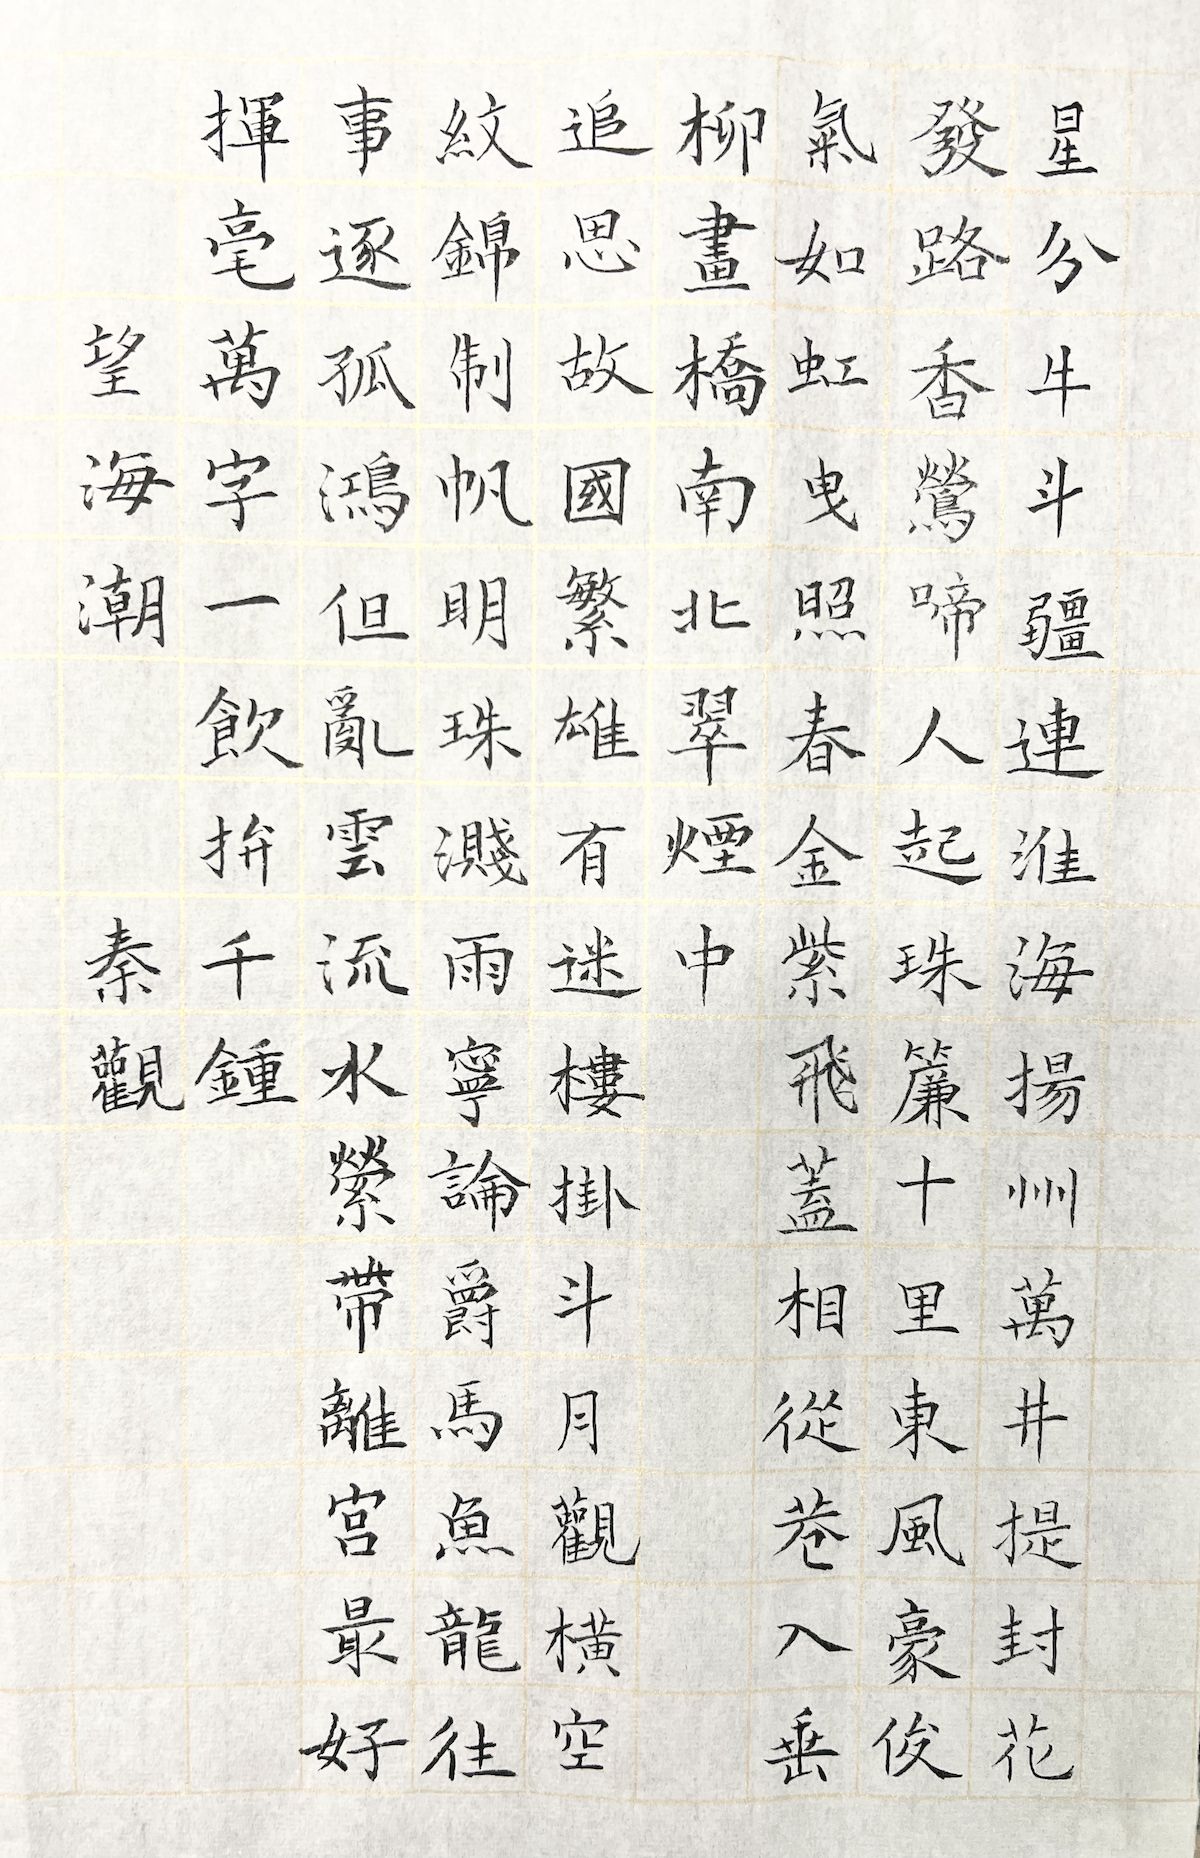 星分牛斗疆連淮海揚州萬井提封花
發路香鶯啼人起珠簾十里東風豪俊
氣如虹曳照春金紫飛蓋相從巷入垂
柳畫橋南北翠煙中
追思故國繁雄有迷樓掛斗月觀橫空
紋錦制帆明珠濺雨寧論爵馬魚龍往
事逐孤鴻但亂雲流水縈帶離宮最好
揮毫萬字一飲拚千鍾
望海潮 秦觀